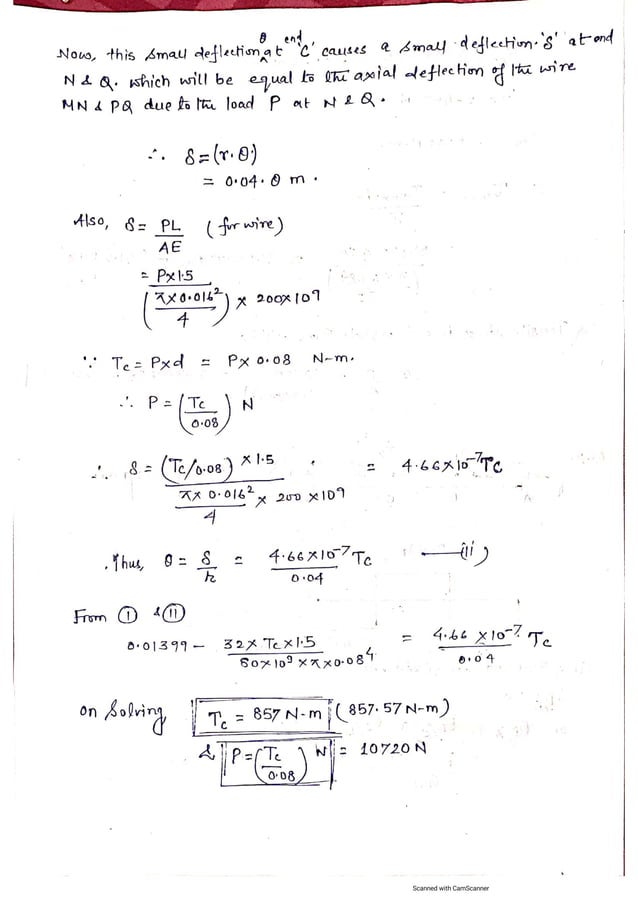 Now, this small deflection θ at end 'C' causes a small deflection 'δ' at end
N & Q. which will be equal to the axial deflection of the wire
MN & PQ due to the load P at N & Q.
∴ δ = (r.θ)
= 0.04.θ m.
Also, δ = PL/AE (for wire)
= P×1.5 / (π×0.016²/4) × 200×10⁹
∵ Tc = P×d = P×0.08 N-m.
∴ P = (Tc/0.08) N
∴ δ = (Tc/0.08) × 1.5 / π×0.016²/4 × 200×10⁹ = 4.66×10⁻⁷Tc
Thus, θ = δ/r = 4.66×10⁻⁷Tc/0.04 —(ii)
From ① & ⑪
0.01399 − 32×Tc×1.5 / 80×10⁹×π×0.08⁴ = 4.66×10⁻⁷ Tc / 0.04
on Solving, Tc = 857 N-m (857.57 N-m)
& P = (Tc/0.08) N = 10720 N
Scanned with CamScanner